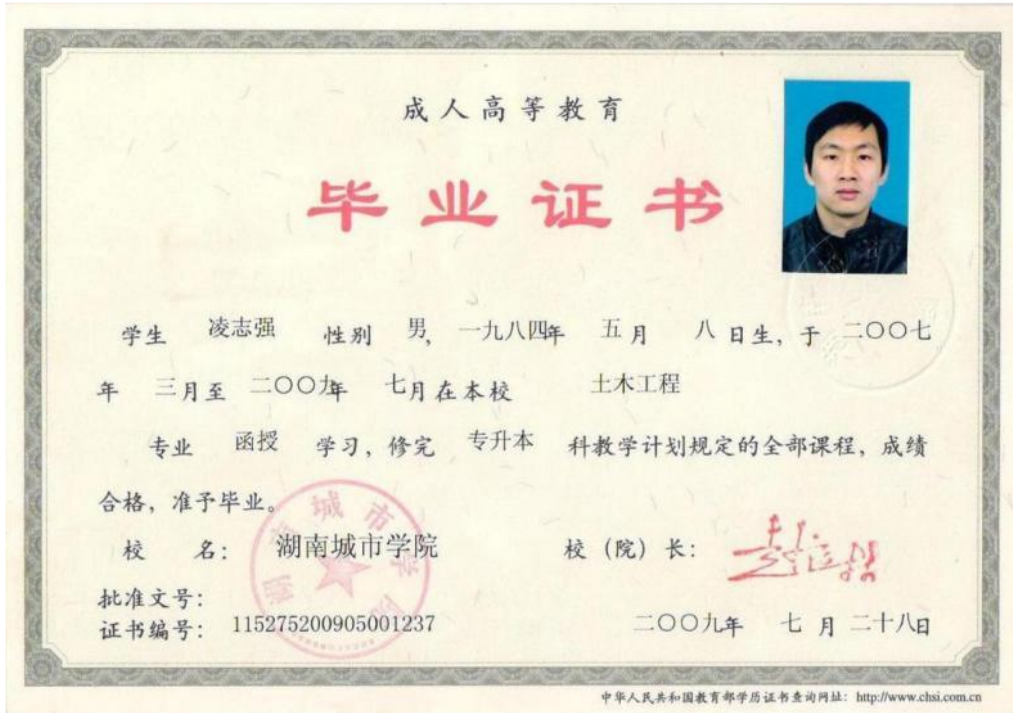 成人高等教育
毕业证书
学生 凌志强 性别 男, 一九八四年 五月 八日生, 于 二〇〇七
年 三月至 二〇〇九年 七月在本校 土木工程
专业 函授 学习, 修完 专升本 科教学计划规定的全部课程, 成绩
合格, 准予毕业。
校 名: 湖南城市学院 校(院)长:
批准文号:
证书编号: 115275200905001237 二〇〇九年 七月二十八日
中华人民共和国教育部学历证书查询网址: http://www.chsi.com.cn